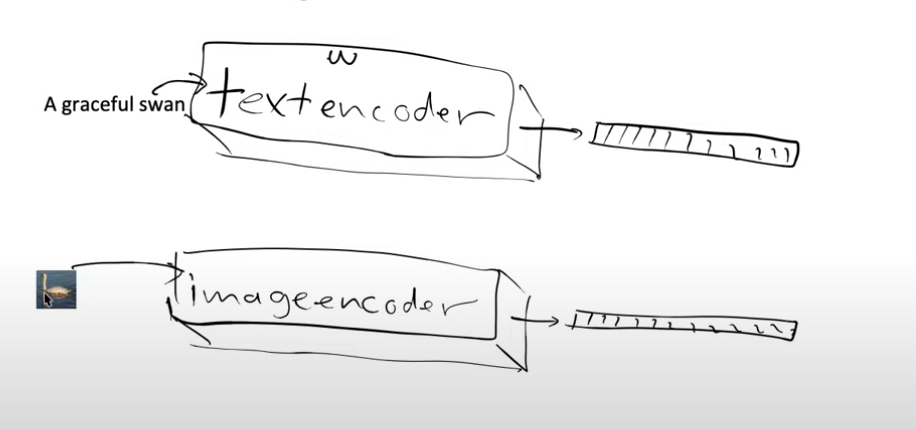 w
A graceful swan
textencoder
imageencoder